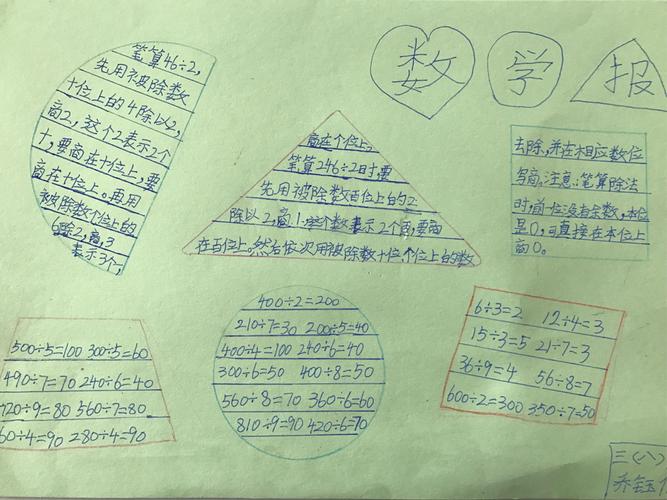 数 学 报
笔算46÷2,
先用被除数
十位上的4除以2,
商2,这个2表示2个
十,要商在十位上,要
商在十位上。再用
被除数个位上的
6÷2,商,3
表示3个,
商在个位上。
笔算246÷2时,要
先用被除数百位上的2
除以2,商1.这个数表示2个百,要商
在百位上。然后依次用被除数十位个位上的数
去除,并在相应数位
写商,注意:笔算除法
时,前一位没有余数,本位
是0,可直接在本位上
商0。
500÷5=100 300÷5=60
490÷7=70 240÷6=40
720÷9=80 560÷7=80
60÷4=90 280÷4=90
400÷2=200
210÷7=30 200÷5=40
400÷4=100 240÷6=40
300÷6=50 400÷8=50
560÷8=70 360÷6=60
810÷9=90 420÷6=70
6÷3=2 12÷4=3
15÷3=5 21÷7=3
36÷9=4 56÷8=7
600÷2=300 350÷7=50
三(八)
乔钰